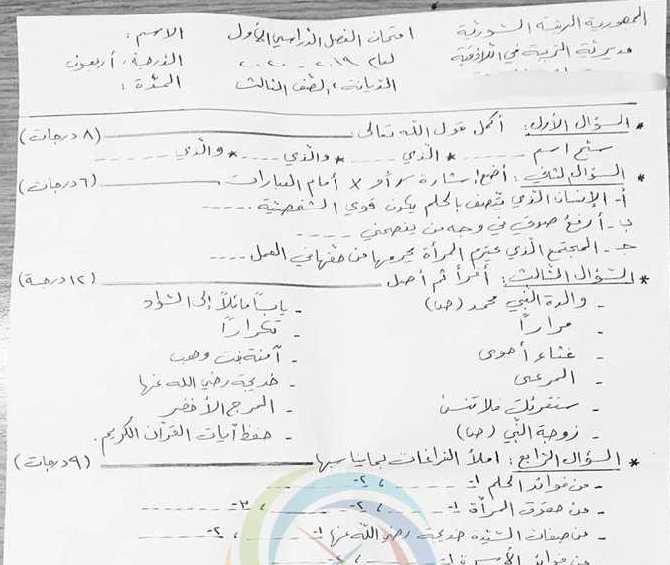 الجمهورية العربية السورية
مديرية التربية في اللاذقية
امتحان الفصل الدراسي الأول
لعام ٢٠١٩ - ٢٠٢٠
الديانة: الصف الثالث
الاسم:
الدرجة: أربعون
المدّة:
* السؤال الأول: أكمل قول الله تعالى (٨ درجات)
سبّح اسم ...... * الّذي ...... * والّذي ...... * والّذي ......
* السؤال الثاني: أضع إشارة √ أو x أمام العبارات (٦ درجات)
أ- الإنسان الذي يتصف بالحلم يكون قوي الشخصيّة .....
ب- أرفع صوتي في وجه من ينصحني .....
ج- المجتمع الذي يحترم المرأة يحرمها من حقها في العمل ....
* السؤال الثالث: أقرأ ثم أصل (١٢ درجة)
- والدة النّبي محمد (ص) - يابساً مائلاً إلى السّواد
- مراراً - تكراراً
- غثاء أحوى - آمنة بنت وهب
- المرعى - خديجة رضي الله عنها
- سنقرئك فلا تنسى - المرج الأخضر
- زوجة النّبي (ص) - حفظ آيات القرآن الكريم.
* السؤال الرّابع: املأ الفراغات بما يناسبها (٩ درجات)
- من فوائد الحلم ١- ......، ٢- ......
- من حقوق المرأة ١- ......، ٢- ......، ٣- ......
- من صفات السّيّدة خديجة رضي الله عنها ١- ......، ٢- ......
- من فوائد الأسرة ١- ......، ٢- ......